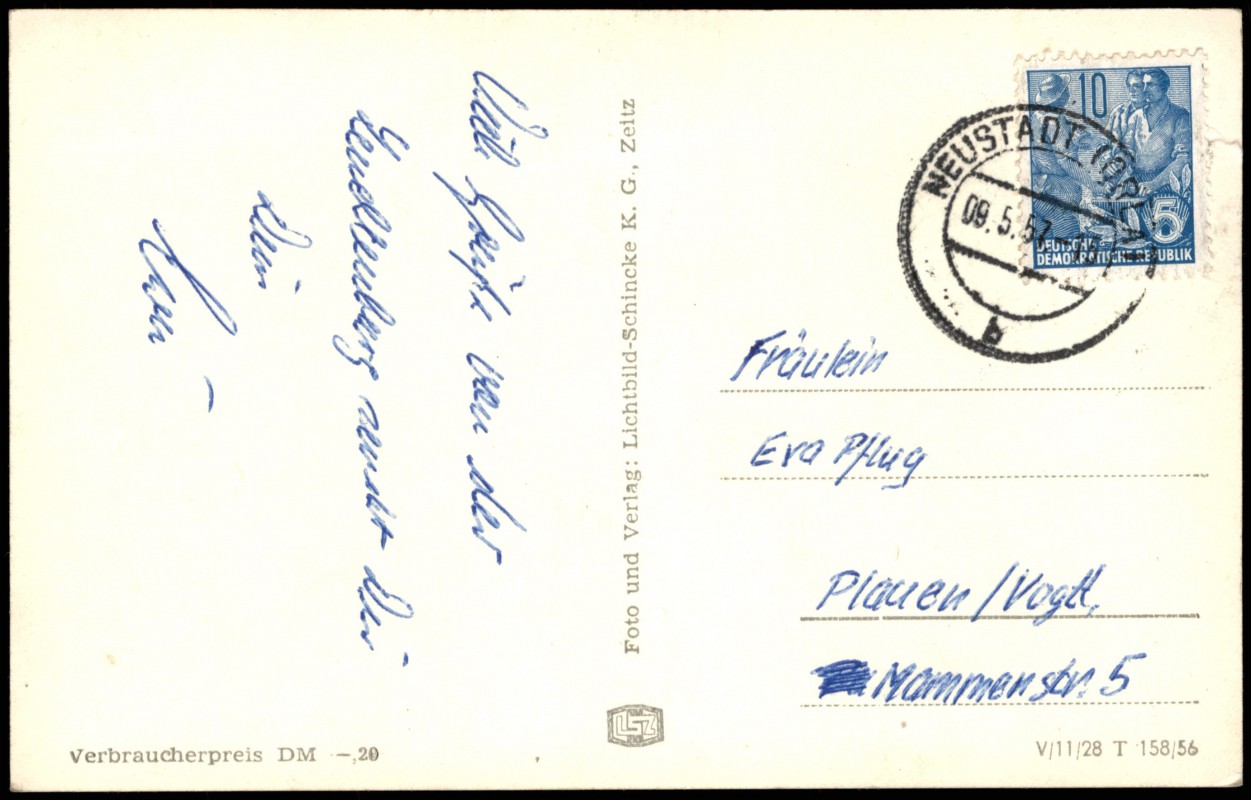 Viele Grüße von der
Leuchtenburg sendet Dir
Dein
Foto und Verlag: Lichtbild-Schincke K. G., Zeitz
LSZ
Verbraucherpreis DM -,20
10
5
DEUTSCHE
DEMOKRATISCHE REPUBLIK
NEUSTADT (ORLA)
09.5.57
b
Fräulein
Eva Pflug
Plauen/Vogtl,
Mammenstr. 5
V/11/28 T 158/56